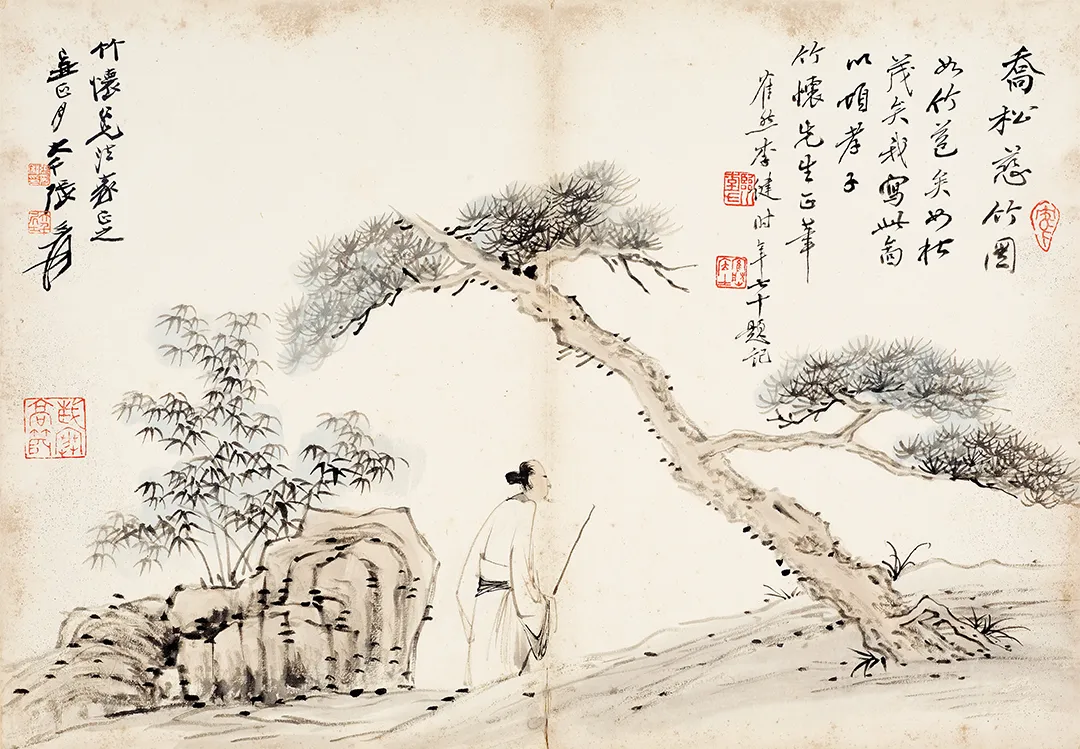 喬松慈竹圖
如竹苞矣如松
茂矣我寫此啚
以頌孝子
竹懷先生正筆
隺然李健时年七十題記
竹懷兄法家正之
正月大千張爰